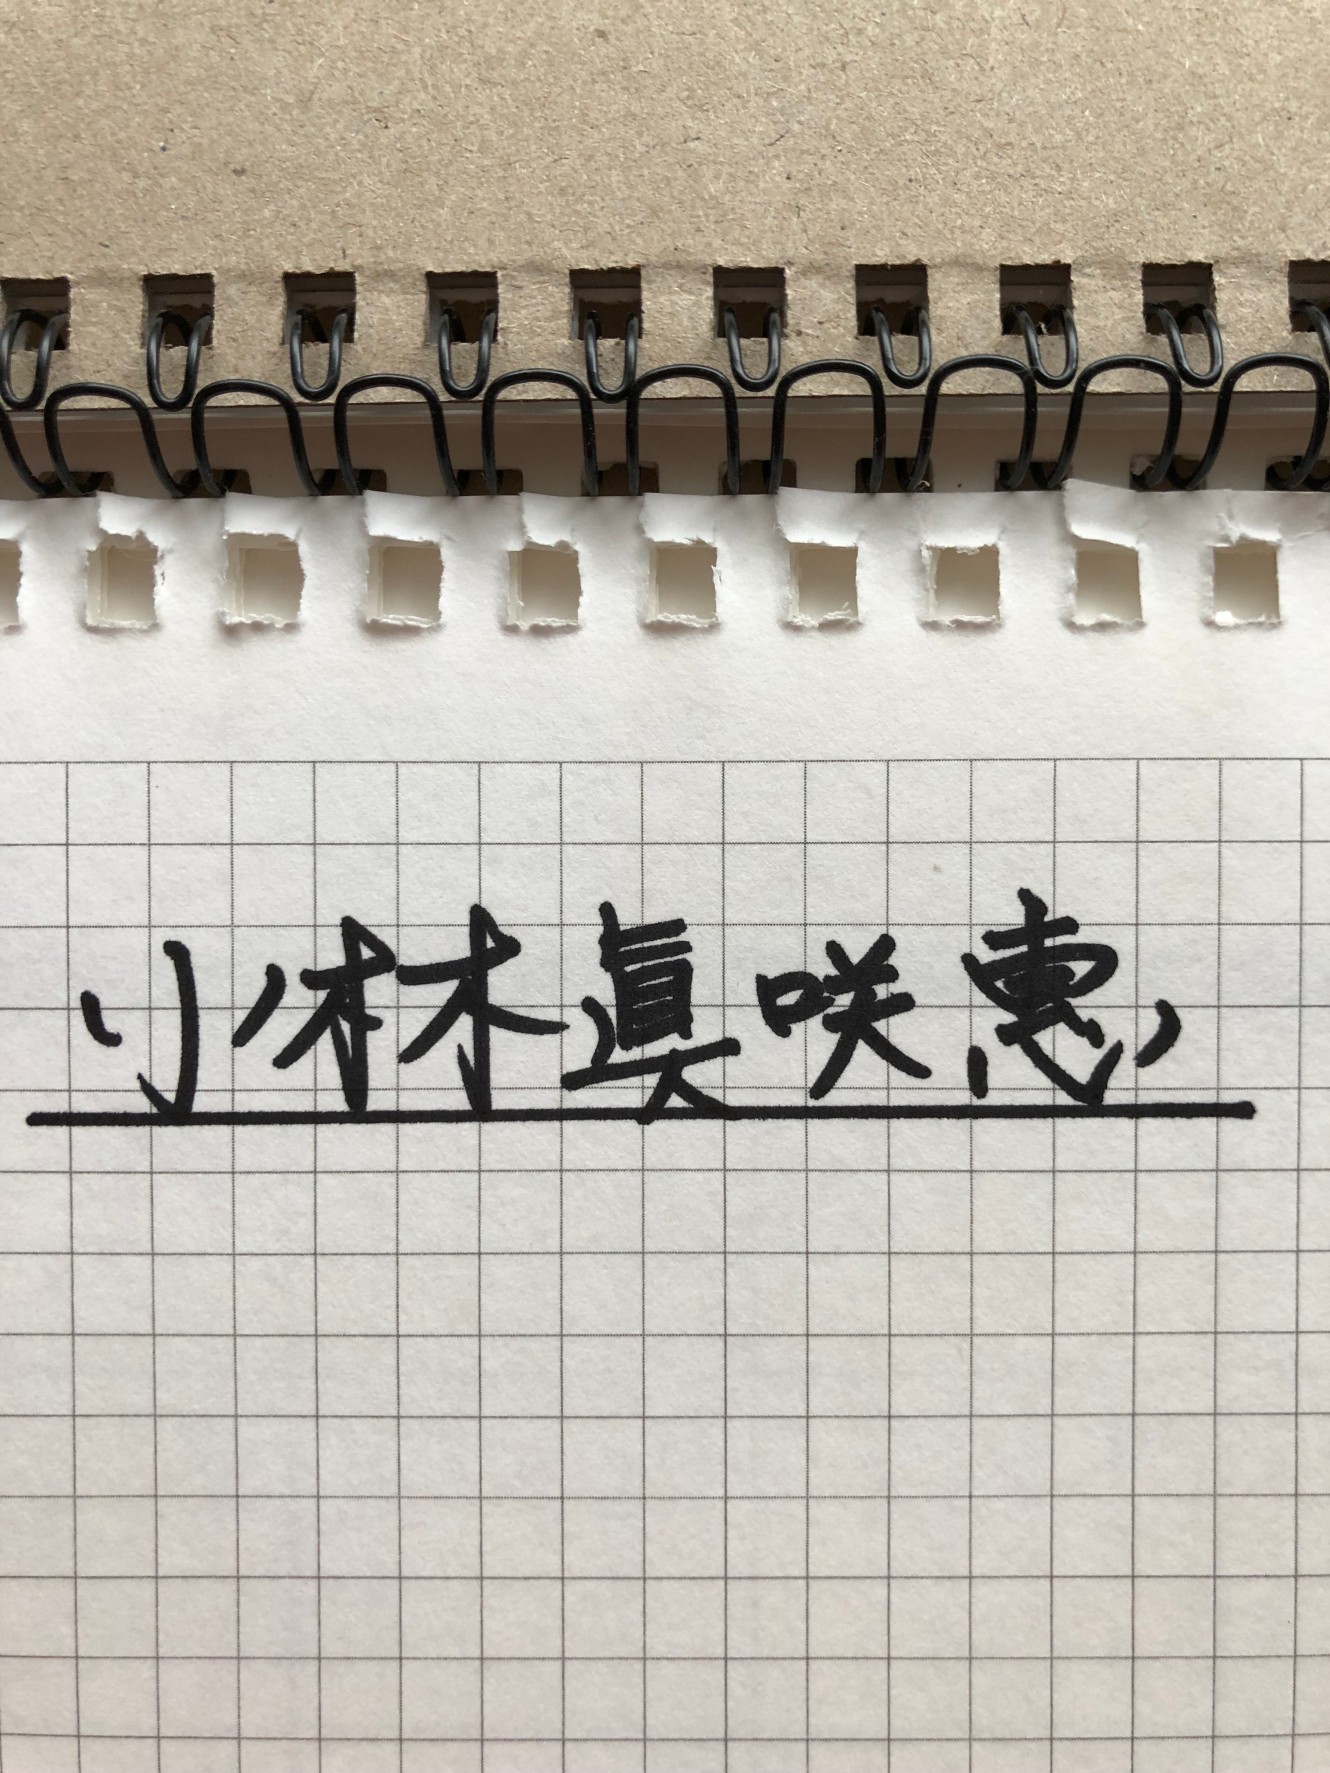 小林眞咲恵